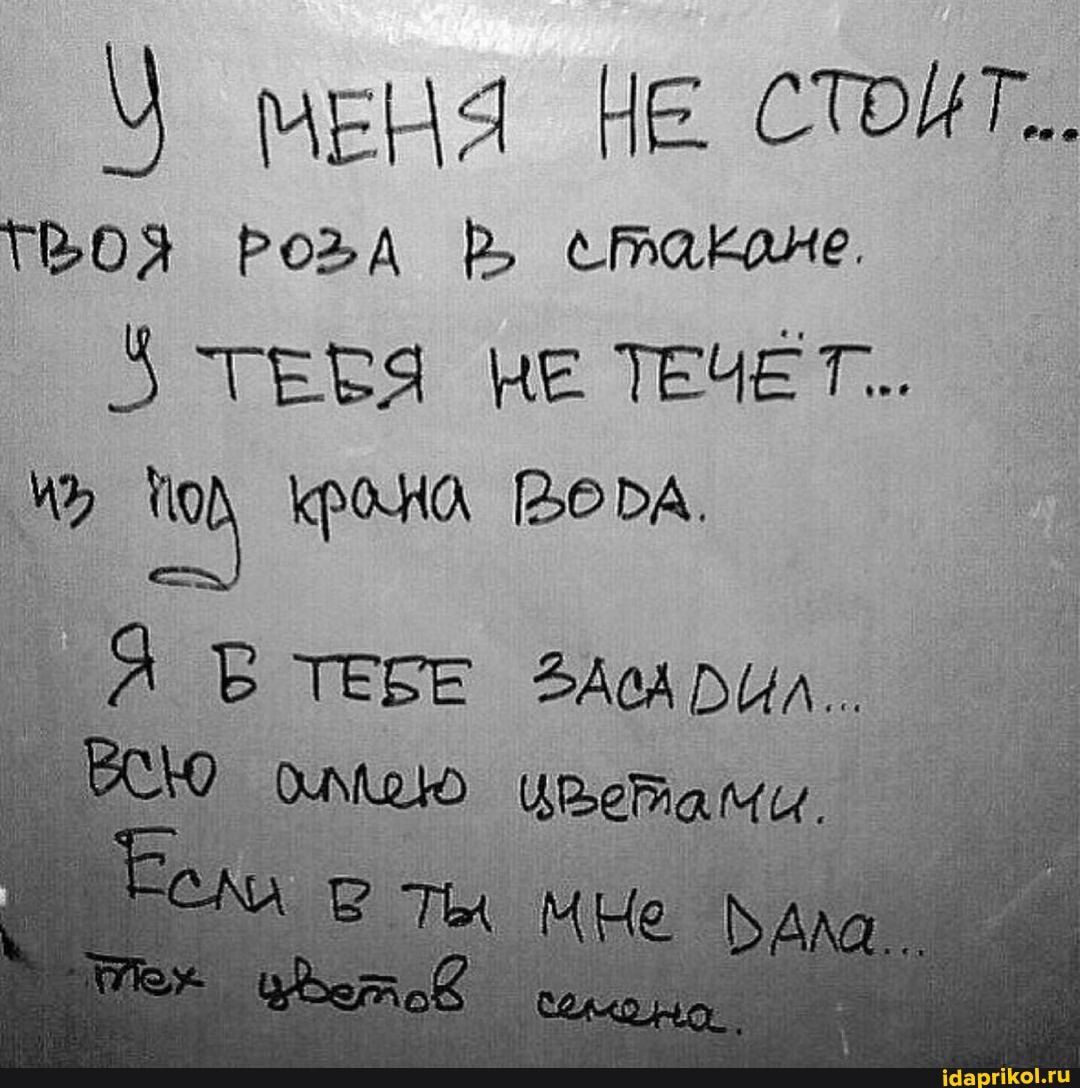 У МЕНЯ НЕ СТОИТ...
ТВОЯ РОЗА В стакане.
У ТЕБЯ НЕ ТЕЧЁТ...
из под крана ВОДА.
Я Б ТЕБЕ ЗАСАДИЛ...
ВСЮ аллею цветами.
Если Б ТЫ МНе ДАЛа...
тех цветов семена.
idaprikol.ru